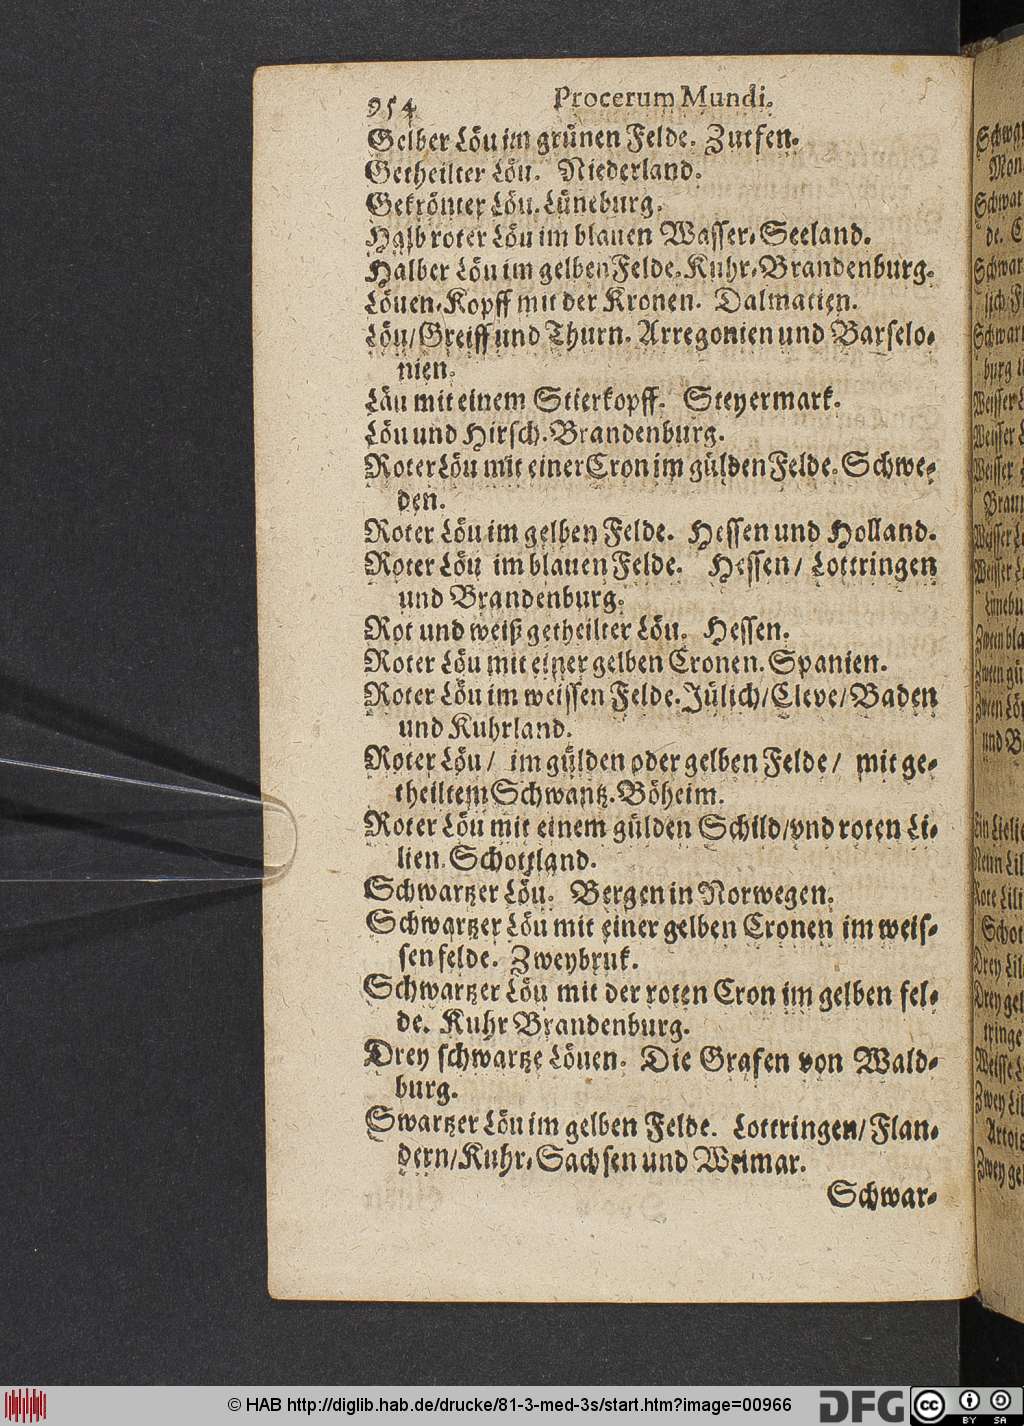 954 Procerum Mundi.
Gelber Löu im grünen Felde. Zutfen.
Getheilter Löu. Niederland.
Gekrönter Löu. Lüneburg.
Halb roter Löu im blauen Wasser, Seeland.
Halber Löu im gelben Felde. Kuhr-Brandenburg.
Löuen-Kopff mit der Kronen. Dalmatien.
Löu/Greiff und Thurn. Arregonien und Barselo-
nien.
Läu mit einem Stierkopff. Steyermark.
Löu und Hirsch. Brandenburg.
Roter Löu mit einer Cron im gülden Felde. Schwe-
den.
Roter Löu im gelben Felde. Hessen und Holland.
Roter Löu im blauen Felde. Hessen/ Lottringen
und Brandenburg.
Rot und weiß getheilter Löu. Hessen.
Roter Löu mit einer gelben Cronen. Spanien.
Roter Löu im weissen Felde. Jülich/Cleve/Baden
und Kuhrland.
Roter Löu/ im gülden oder gelben Felde/ mit ge-
theiltem Schwantz. Böheim.
Roter Löu mit einem gülden Schild/vnd roten Li-
lien. Schottland.
Schwartzer Löu. Bergen in Norwegen.
Schwartzer Löu mit einer gelben Cronen im weis-
sen felde. Zweybruk.
Schwartzer Löu mit der roten Cron im gelben fel-
de. Kuhr Brandenburg.
Drey schwartze Löuen. Die Grafen von Wald-
burg.
Swartzer Löu im gelben Felde. Lottringen/Flan-
dern/Kuhr-Sachsen und Weimar.
Schwar-
© HAB http://diglib.hab.de/drucke/81-3-med-3s/start.htm?image=00966
DFG
cc
BY SA